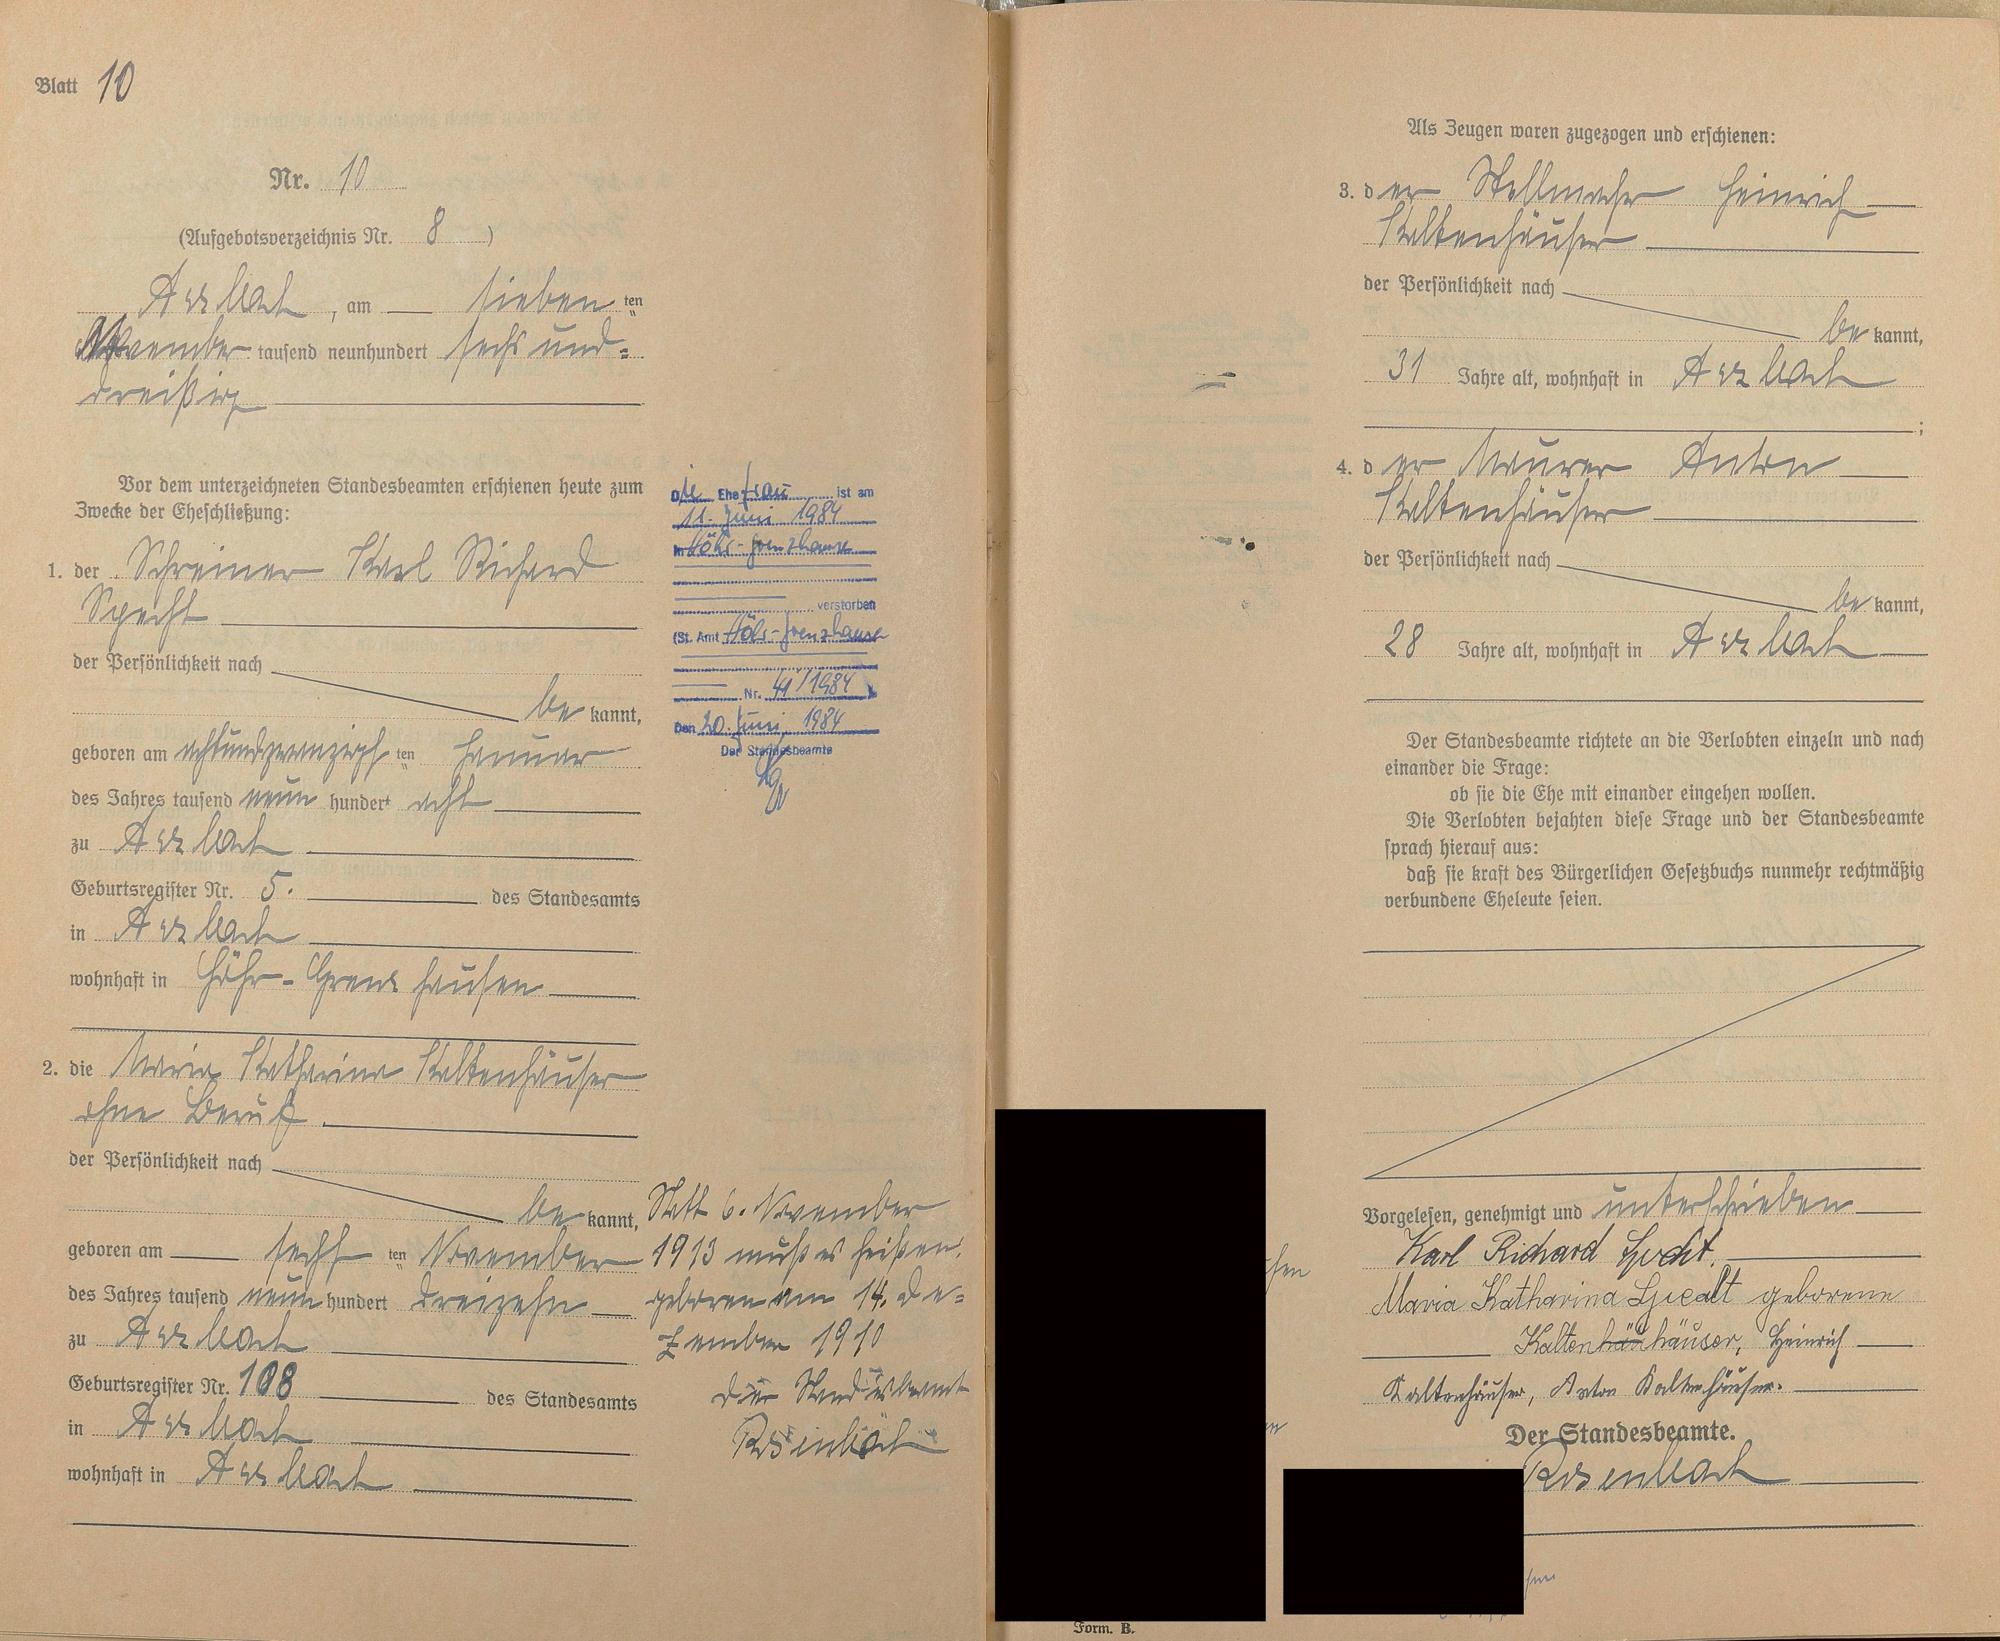 Blatt 10
Nr. 10
(Aufgebotsverzeichnis Nr. 8)
Arzbach, am — sieben ten
November tausend neunhundert sechs und-
dreißig
Vor dem unterzeichneten Standesbeamten erschienen heute zum
Zwecke der Eheschließung:
1. der Schreiner Karl Richard
Specht
der Persönlichkeit nach
be kannt,
geboren am achtundzwanzigsten Januar
des Jahres tausend neun hundert acht
zu Arzbach
Geburtsregister Nr. 5. des Standesamts
in Arzbach
wohnhaft in Höhr-Grenzhausen
2. die Maria Katharina Kaltenhäuser
ohne Beruf.
der Persönlichkeit nach
be kannt,
geboren am — sechs ten November
des Jahres tausend neun hundert dreizehn
zu Arzbach
Geburtsregister Nr. 108 des Standesamts
in Arzbach
wohnhaft in Arzbach
Die Ehefrau ist am
11. Juni 1984
in Höhr-Grenzhausen
verstorben
(St. Amt Höhr-Grenzhausen
Nr. 41/1984
Den 20. Juni 1984
Der Standesbeamte
Statt 6. November
1913 muß es heißen:
geboren am 14. De-
zember 1910
Der Standesbeamte
Rosenbach
Als Zeugen waren zugezogen und erschienen:
3. der Stellmacher Heinrich
Kaltenhäuser
der Persönlichkeit nach
be kannt,
31 Jahre alt, wohnhaft in Arzbach
;
4. der Maurer Anton
Kaltenhäuser
der Persönlichkeit nach
be kannt,
28 Jahre alt, wohnhaft in Arzbach
Der Standesbeamte richtete an die Verlobten einzeln und nach
einander die Frage:
ob sie die Ehe mit einander eingehen wollen.
Die Verlobten bejahten diese Frage und der Standesbeamte
sprach hierauf aus:
daß sie kraft des Bürgerlichen Gesetzbuchs nunmehr rechtmäßig
verbundene Eheleute seien.
Vorgelesen, genehmigt und unterschrieben
Karl Richard Specht.
Maria Katharina Specht geborene
Kaltenhäuser, Heinrich
Kaltenhäuser, Anton Kaltenhäuser.
Der Standesbeamte.
Rosenbach
Form. B.